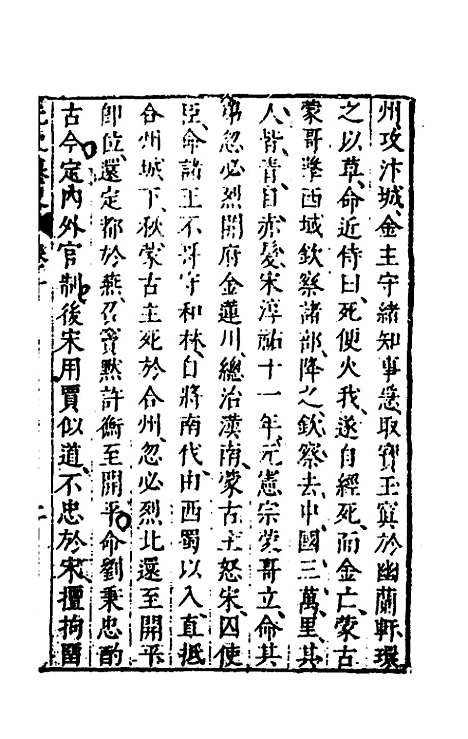 州攻汴城金主守緒知事急取寶玉寘於幽蘭軒環
之以草命近侍曰死便火我遂自經死而金亡蒙古
蒙哥擊西域欽察諸部降之欽察去中國三萬里其
人皆青目赤髮宋淳祐十一年元憲宗蒙哥立命其
弟忽必烈開府金蓮川總治漢南蒙古主怒宋囚使
臣命諸王不哥守和林自將南伐由西蜀以入直抵
合州城下秋蒙古主死於合州忽必烈北還至開平
卽位還定都於燕召竇默許衡至開平命劉秉忠酌
古今定內外官制後宋用賈似道不忠於宋擅拘留